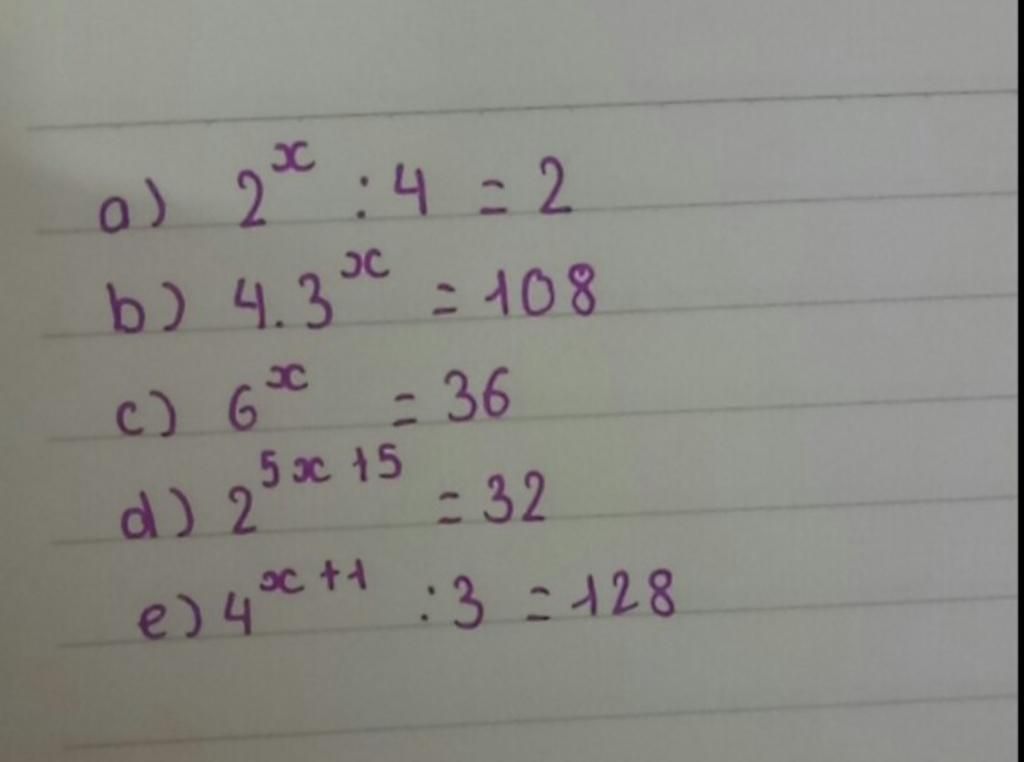 a) 2^x : 4 = 2
b) 4.3^x = 108
c) 6^x = 36
d) 2^{5x+5} = 32
e) 4^{x+1} : 3 = 128